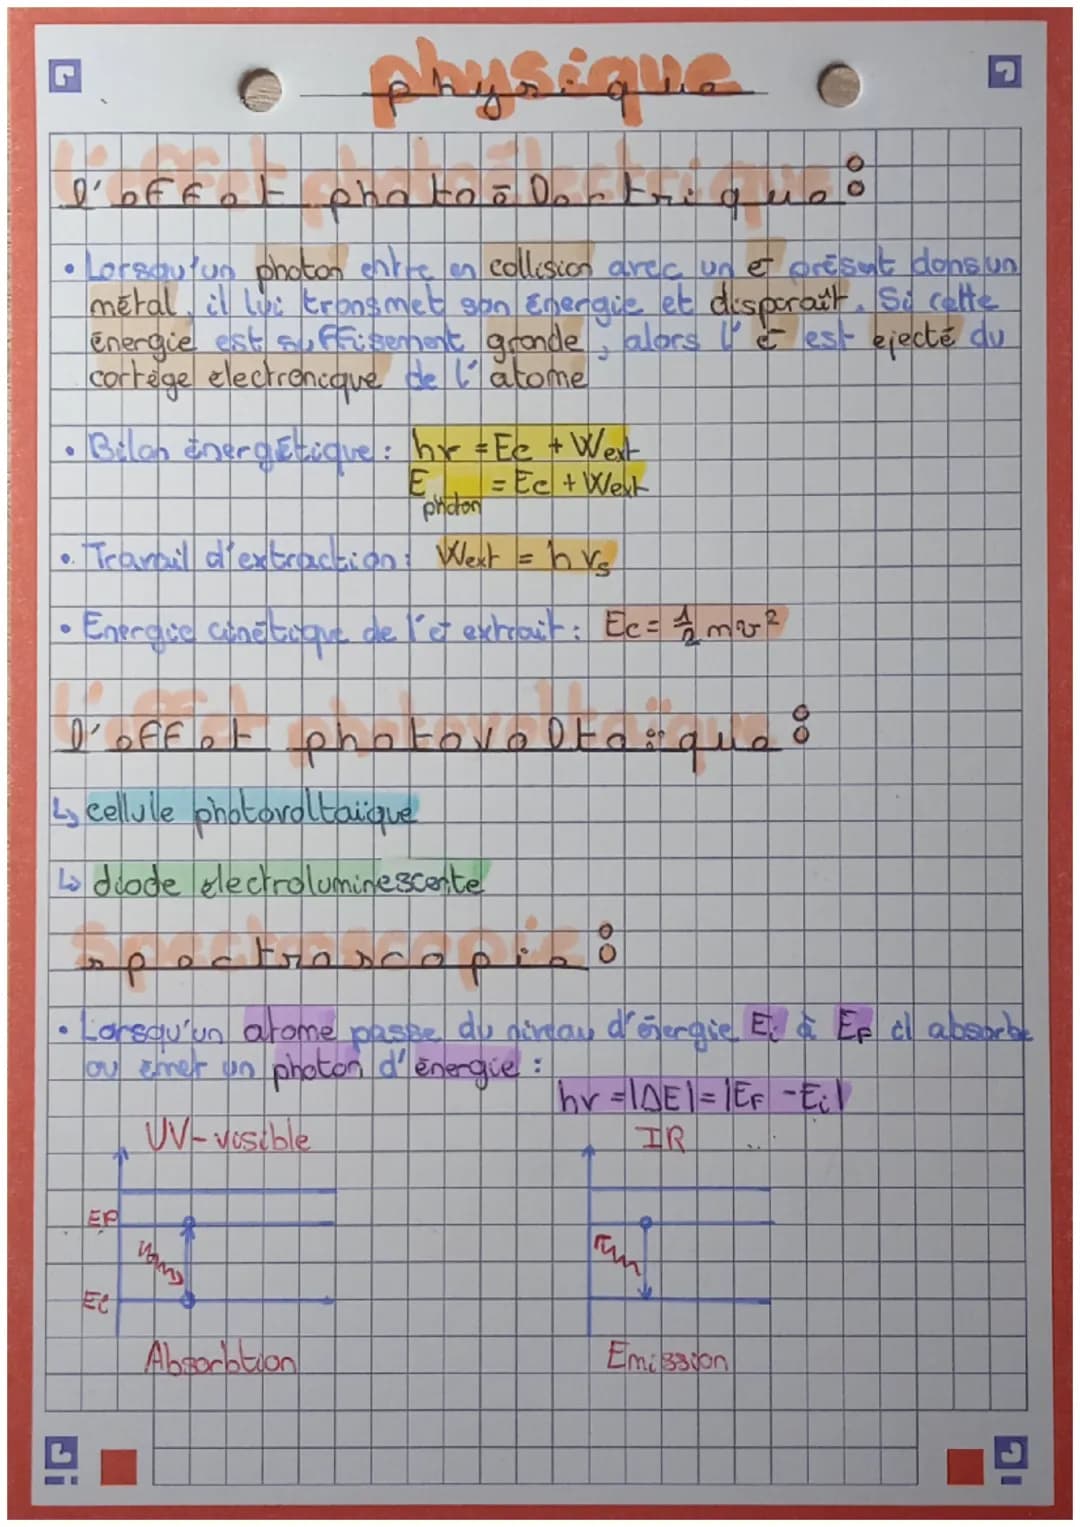 physique
l'effet photoélectrique :
• Lorsqu'un photon entre en collision avec un e⁻ présent dans un
métal, il lui transmet son énergie et disparaît. Si cette
énergie est suffisement grande, alors l'e⁻ est ejecté du
cortège electronique de l'atome
• Bilan énergétique : hν = Ec + Wext
E photon = Ec + Wext
• Travail d'extraction : Wext = h νs
• Energie cinétique de l'e⁻ extrait : Ec = 1/2 mv²
l'effet photovoltaïque :
↳ cellule photovoltaïque
↳ diode electroluminescente
spectroscopie :
• Lorsqu'un atome passe du niveau d'énergie Ei à EF il absorbe
ou émet un photon d'énergie :
hν = |ΔE| = |EF - Ei|
UV-visible IR
EF
Ei
Absorbtion Emission